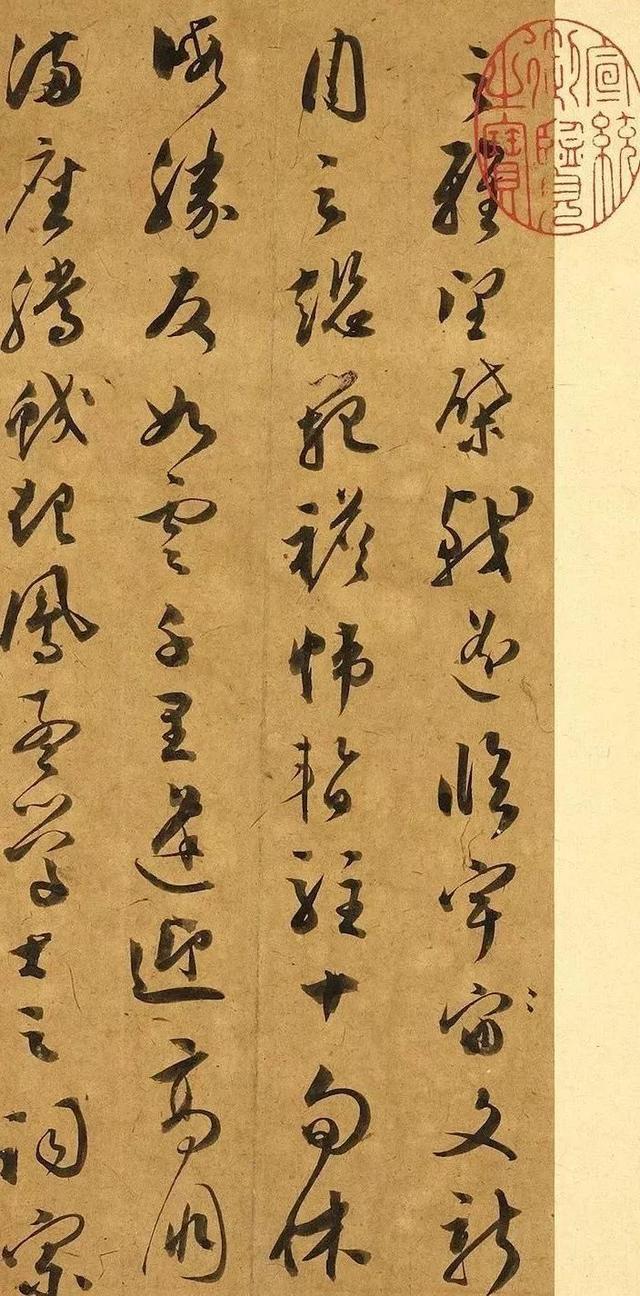 之雅望棨戟遙臨宇宙文新
州之懿範襜帷暫駐十旬休
暇勝友如雲千里逢迎高朋
滿座騰蛟起鳳孟學士之詞宗
宣統御覽之寶